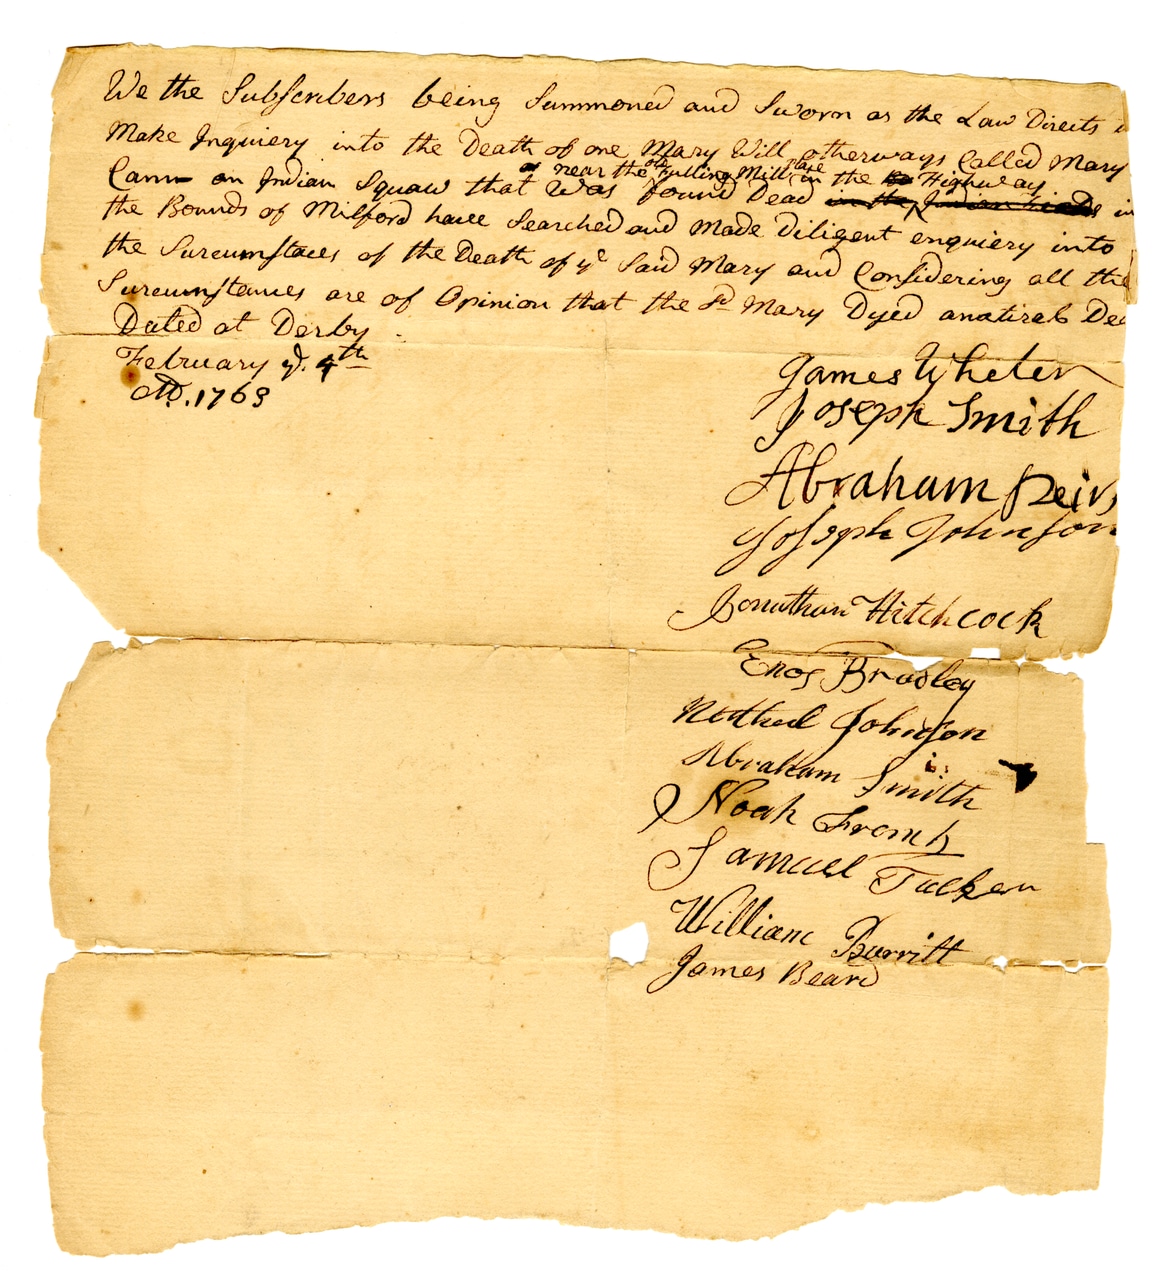 We the Subscribers being Summoned and Sworn as the Law Directs
Make Inquiery into the Death of one Mary Will otherways Called Mary
at near the old Fulling Mill place
Cam an Indian Squaw that Was found Dead in the Highway in
the Bounds of Milford have Searched and Made Diligent enquiery into
the Surcumstaces of the Death of ye Said Mary and Considering all the
Surcumstances are of Opinion that the sd Mary Dyed a natiral Dea
Dated at Derby
February ye. 4th
AD. 1763
James Wheler
Joseph Smith
Abraham Peirs
Joseph Johnson
Jonathan Hitchcock
Enos Bradley
Johnson
Abraham Smith
Noah
Samuel Tucker
William Burritt
James Beard